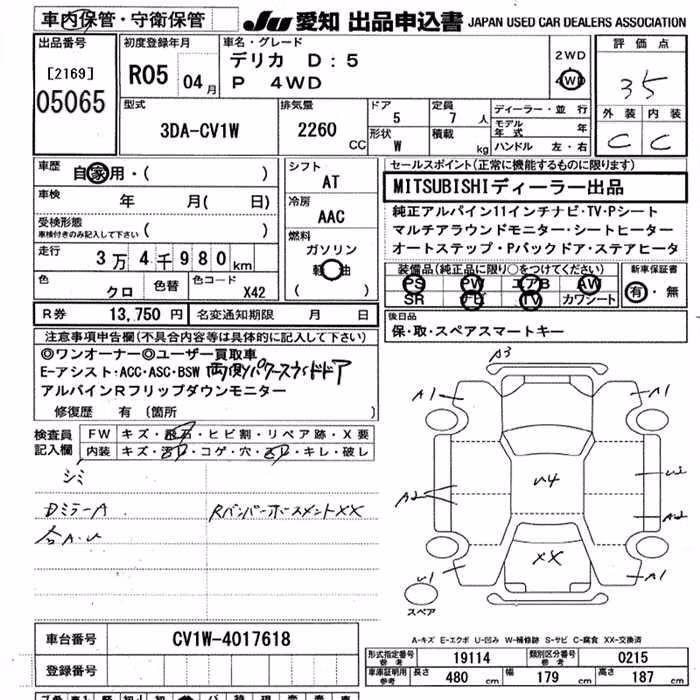 車内保管・守衛保管
JU 愛知 出品申込書 JAPAN USED CAR DEALERS ASSOCIATION
出品番号
[2169]
05065
初度登録年月
R05 04 月
車名・グレード
デリカ D:5
P 4WD
2WD
4WD
評価点
3.5
外装 内装
C C
型式
3DA-CV1W
排気量
2260 CC
ドア
5
形状
W
定員
7 人
積載
kg
ディーラー・並行
モデル年式 年
ハンドル 左・右
車歴
自家用・( )
車検
年 月( 日)
受検形態
車検付きのみ記入して下さい ( )
走行
3万4千980km
色
クロ
色替
色コード
X42
シフト
AT
冷房
AAC
燃料
ガソリン
軽油
( )
セールスポイント(正常に機能するものに限ります)
MITSUBISHIディーラー出品
純正アルパイン11インチナビ・TV・Pシート
マルチアラウンドモニター・シートヒーター
オートステップ・Pバックドア・ステアヒータ
装備品(純正品に限り○をつけてください)
PS PW エアB AW
SR ナビ TV カワシート
新車保証書
有・無
R券 13,750 円
名変通知期限 月 日
後日品
保・取・スペアスマートキー
注意事項申告欄(不具合内容等は具体的に記入して下さい)
◎ワンオーナー◎ユーザー買取車
E-アシスト・ACC・ASC・BSW 両側パワースライドドア
アルパインRフリップダウンモニター
修復歴 有 (箇所 )
検査員
記入欄
FW キズ・飛石・ヒビ割・リペア跡・X要
内装 キズ・汚れ・コゲ・穴・スレ・キレ・破レ
シミ
DミラーA
RバンパーホースメントXX
合A.U
A3
A1
A1
A2
U4
U2
A2
XX
U1
A1
スペア
A-キズ E-エクボ U-凹み W-補修跡 S-サビ C-腐食 XX-交換済
車台番号
CV1W-4017618
登録番号
形式指定番号
参考
19114
類別区分番号
参考
0215
車庫証明用
参考
長さ 480 cm
幅 179 cm
高さ 187 cm